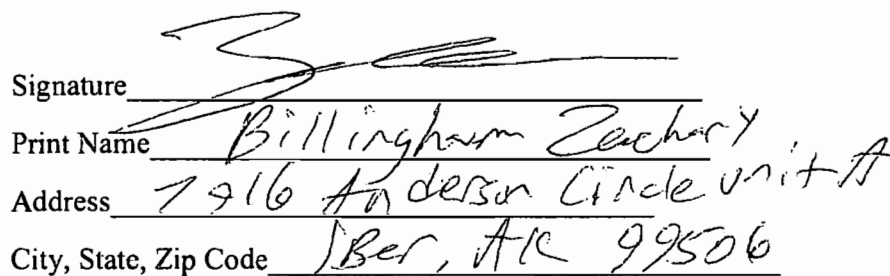 Signature
Print Name Billingham Zachary
Address 7916 Anderson Circle unit A
City, State, Zip Code JBer, AK 99506